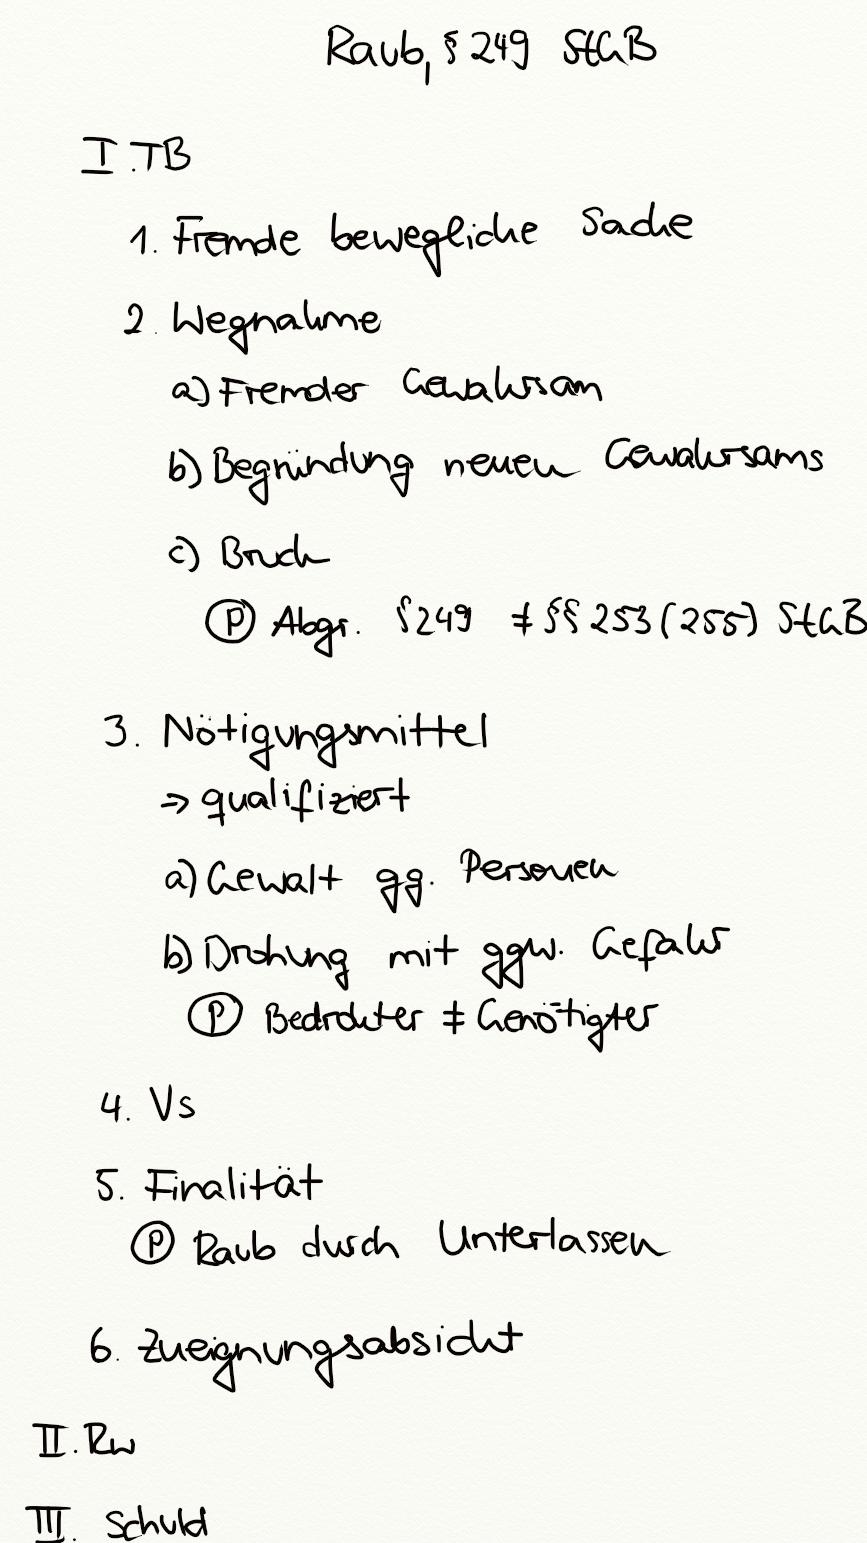 Raub, § 249 StGB
I. TB
1. Fremde bewegliche Sache
2. Wegnahme
a) Fremder Gewahrsam
b) Begründung neuen Gewahrsams
c) Bruch
(P) Abgr. § 249 ≠ §§ 253 (255) StGB
3. Nötigungsmittel
⇒ qualifiziert
a) Gewalt gg. Personen
b) Drohung mit ggw. Gefahr
(P) Bedrohter ≠ Genötigter
4. Vs
5. Finalität
(P) Raub durch Unterlassen
6. Zueignungsabsicht
II. Rw
III. Schuld